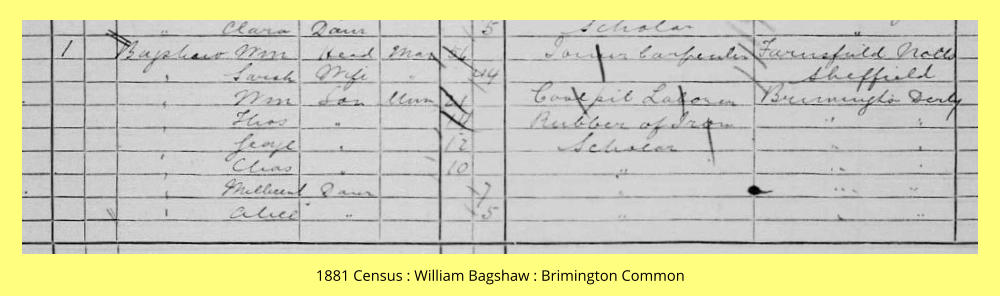 Clara Daur 5 Scholar "
1 Bagshaw Wm Head Mar Joiner Carpenter Farnsfield Notts
" Sarah Wife " 44 Sheffield
" Wm Son Unm 21 Coalpit Laborer Brimington Derby
" Thos " Rubber of Iron " "
" George " 12 Scholar " "
" Chas " 10 " " "
" Millicent Daur 7 " " "
" Alice " 5 " " "
1881 Census : William Bagshaw : Brimington Common